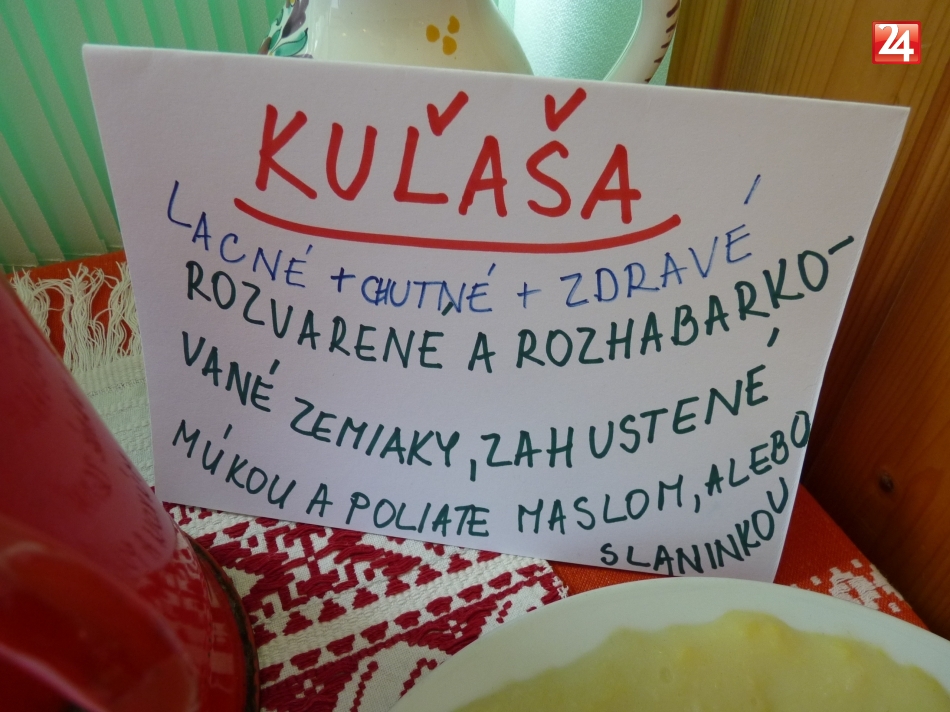 24
KUĽAŠA
LACNÉ + CHUTNÉ + ZDRAVÉ
ROZVARENE A ROZHABARKO-
VANÉ ZEMIAKY, ZAHUSTENÉ
MÚKOU A POLIATE MASLOM, ALEBO
SLANINKOU